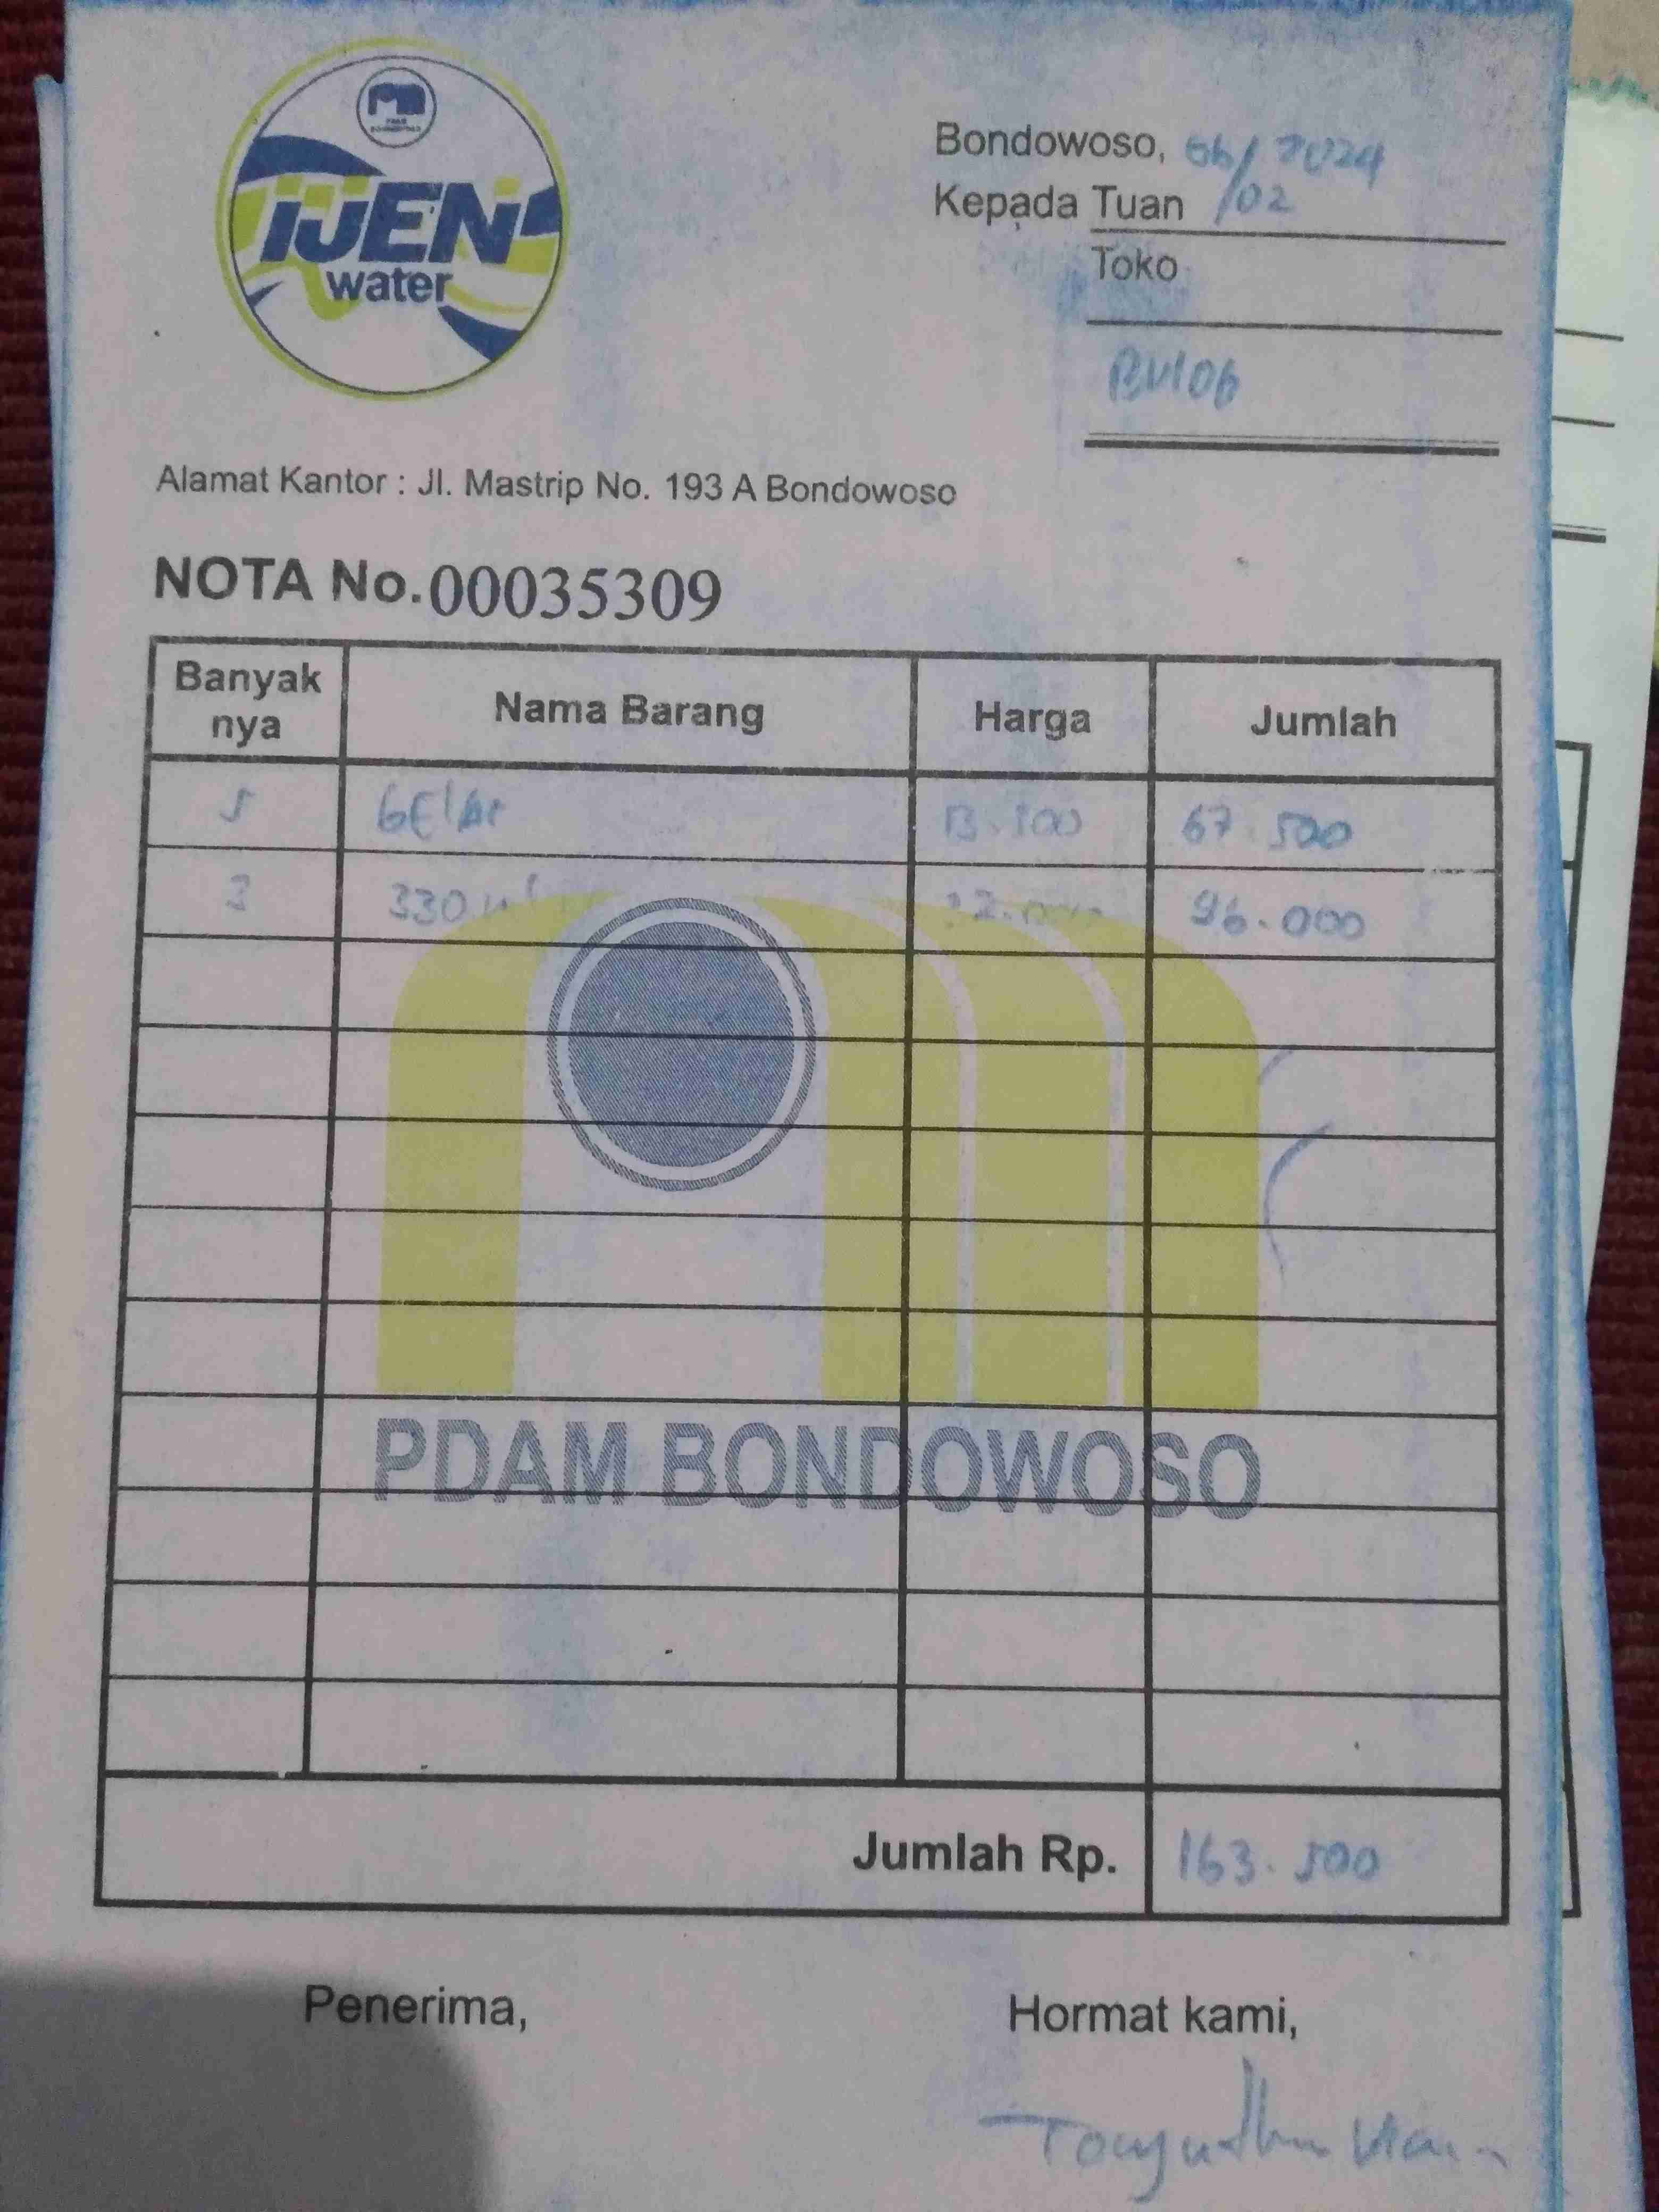 iJEN
water
Bondowoso, 06/02 2024
Kepada Tuan
Toko
Alamat Kantor : Jl. Mastrip No. 193 A Bondowoso
NOTA No.00035309
Banyak nya Nama Barang Harga Jumlah
5 GElAr 13.500 67.500
3 330 ml 96.000
PDAM BONDOWOSO
Jumlah Rp. 163.500
Penerima, Hormat kami,